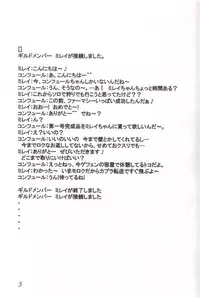 ギルドメンバー ミレイが接続しました。
ミレイ:こんにちは~♪
コンフェール:あ、こんにちは~^^
ミレイ:今、コンフェールちゃんしかいないんだね~
コンフェール:うん、そうなの~。…あ! ミレイちゃんちょっと時間ある?
ミレイ:これからソロで狩りでも行こうと思ってたけど、どしたの?
コンフェール:この前、ファーマシーいっぱい成功したんだよ~
ミレイ:おお~! おめでと~!
コンフェール:ありがと~^^ でね~?
ミレイ:ん?
コンフェール:第一号完成品をミレイちゃんに貰って欲しいんだ~。
ミレイ:え?いいの?
コンフェール:いいのいいの 今まで壁とかしてくれてるし…
今までロクなお返ししてないから、せめておクスリでも…
ミレイ:ありがと~ ぜひいただきます♪
どこまで取りにいけばいい?
コンフェール:えっとねっ、今ゲフェンの宿屋で休憩してるトコだよ。
ミレイ:わかった~ いまモロクだからカプラ転送ですぐ飛ぶよ~
コンフェール:うん!待ってるね!
ギルドメンバー ミレイが終了しました
ギルドメンバー ミレイが接続しました
・
・
・
・
3